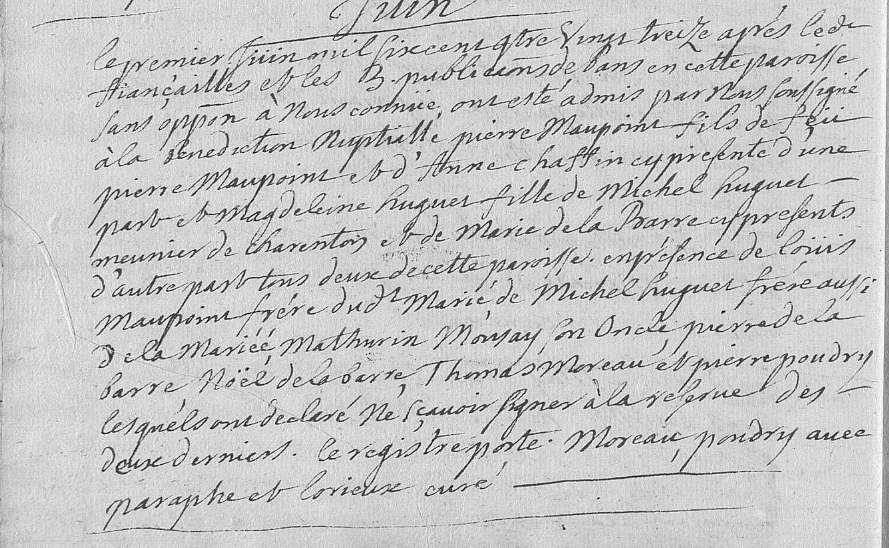 Juin
le premier Juin mil six cent qtre Vingt treize après les d.
fiançailles et les 3. publicaõns de bans en cette paroisse
sans oppõn à Nous connüe, ont esté admis par Nous soussigné
à la Benediction Nuptialle pierre Maupoint fils de feü
pierre Maupoint et d'Anne chaffin cy presente d'une
part et Magdeleine huguet fille de Michel huguet
meunier de Charenton et de Marie de la Barre cy presents
d'autre part tous deux de cette paroisse. en présence de loüis
Maupoint frére du dt Marié de Michel huguet frére aussi
de la Mariéé, Mathurin Monsay son Oncle, pierre de la
barre Nöël de la barre, Thomas Moreau, et pierre poudry
lesquels ont declaré Ne sçavoir signer à la reserve des
deux derniers. le registre porte. Moreau, poudry avec
paraphe et lorieux curé